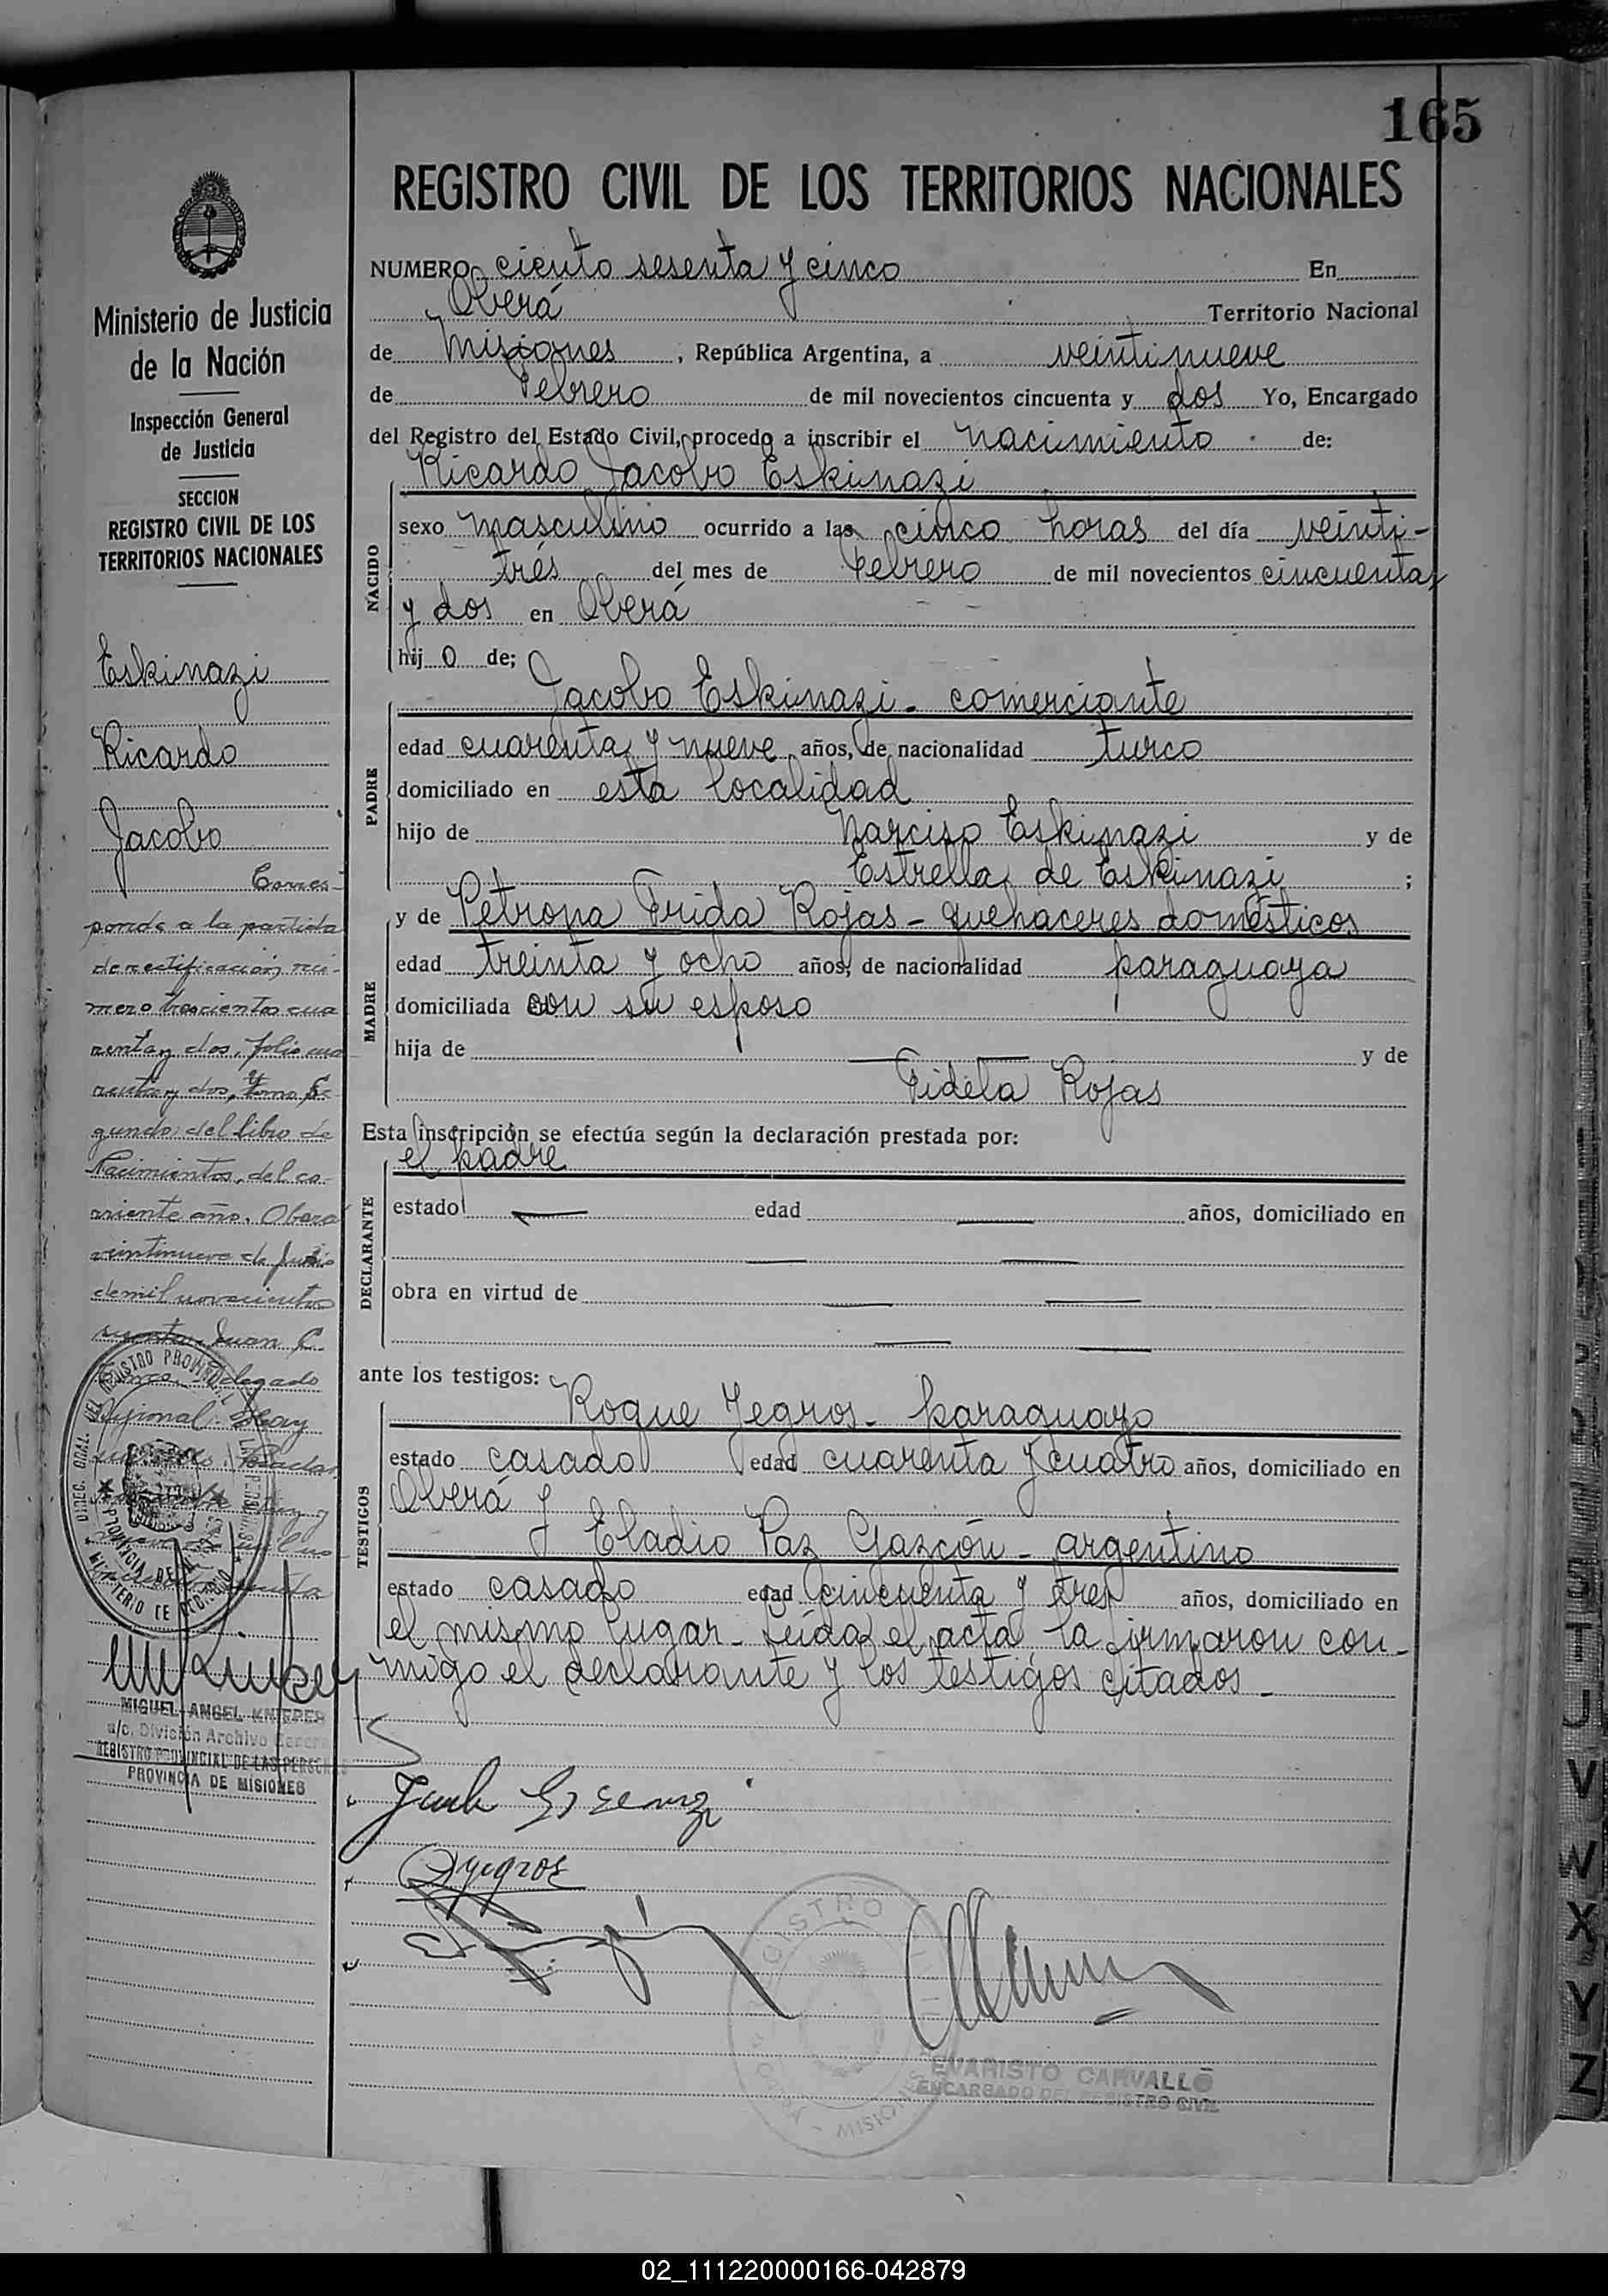 165
REGISTRO CIVIL DE LOS TERRITORIOS NACIONALES
Ministerio de Justicia
de la Nación
Inspección General
de Justicia
SECCION
REGISTRO CIVIL DE LOS
TERRITORIOS NACIONALES
Eskinazi
Ricardo
Jacobo
Corres-
ponde a la partida
de rectificación nú-
mero trescientos cua
renta y dos, folio cua
renta y dos, tomo se
gundo del libro de
Nacimientos, del co-
rriente año. Oberá
veintinueve de
de mil novecientos
Juan C.
Delegado
MIGUEL ANGEL KNIEPER
a/c. División Archivo General
REGISTRO PROVINCIAL DE LAS PERSONAS
PROVINCIA DE MISIONES
NUMERO ciento sesenta y cinco En
Oberá Territorio Nacional
de Misiones, República Argentina, a veintinueve
de Febrero de mil novecientos cincuenta y dos Yo, Encargado
del Registro del Estado Civil, procedo a inscribir el nacimiento de:
Ricardo Jacobo Eskinazi
NACIDO
sexo masculino ocurrido a las cinco horas del día veinti-
trés del mes de Febrero de mil novecientos cincuenta
y dos en Oberá
hij o de;
Jacobo Eskinazi - comerciante
PADRE
edad cuarenta y nueve años, de nacionalidad turco
domiciliado en esta localidad
hijo de Narciso Eskinazi y de
Estrella de Eskinazi ;
y de Petrona Frida Rojas - quehaceres domésticos
MADRE
edad treinta y ocho años, de nacionalidad paraguaya
domiciliada con su esposo
hija de — — y de
Fidela Rojas
Esta inscripción se efectúa según la declaración prestada por:
el padre
DECLARANTE
estado — edad — años, domiciliado en
— —
obra en virtud de — —
— —
ante los testigos:
Roque Yegros - paraguayo
TESTIGOS
estado casado edad cuarenta y cuatro años, domiciliado en
Oberá
y Eladio Paz Gazcón - argentino
estado casado edad cincuenta y tres años, domiciliado en
el mismo lugar - Leída el acta la firmaron con-
migo el declarante y los testigos citados -
EVARISTO CARVALLO
ENCARGADO DEL REGISTRO CIVIL
U
V
W
X
Y
Z
02_111220000166-042879